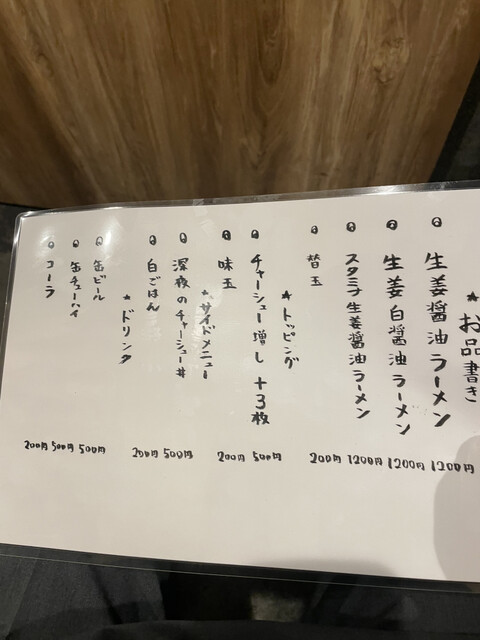 ★お品書き
生姜醤油ラーメン 1200円
生姜白醤油ラーメン 1200円
スタミナ生姜醤油ラーメン 1200円
替玉 200円
★トッピング
チャーシュー増し +3枚 500円
味玉 200円
★サイドメニュー
深夜のチャーシュー丼 500円
白ごはん 200円
★ドリンク
缶ビール 500円
缶チューハイ 500円
コーラ 200円